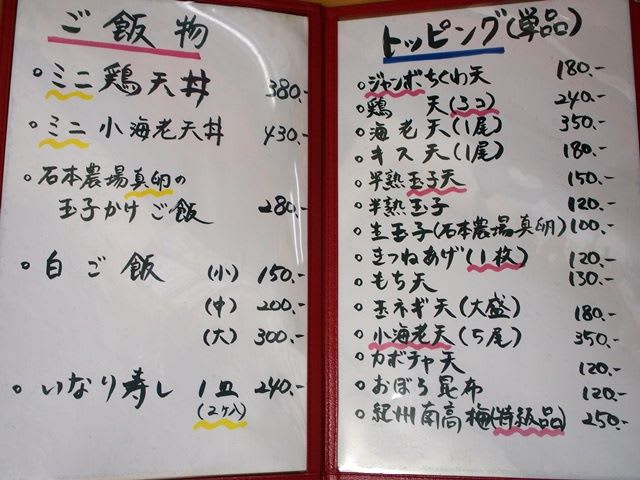 ご飯物
◦ミニ鶏天丼 380.-
◦ミニ小海老天丼 430.-
◦石本農場真卵の
玉子かけご飯 280.-
◦白ご飯 (小) 150.-
(中) 200.-
(大) 300.-
◦いなり寿し 1皿 240.-
(2ケ入)
トッピング(単品)
◦ジャンボちくわ天 180.-
◦鶏天(3コ) 240.-
◦海老天(1尾) 350.-
◦キス天(1尾) 180.-
◦半熟玉子天 150.-
◦半熟玉子 120.-
◦生玉子(石本農場真卵) 100.-
◦きつねあげ(1枚) 120.-
◦もち天 130.-
◦玉ネギ天(大盛) 180.-
◦小海老天(5尾) 350.-
◦カボチャ天 120.-
◦おぼろ昆布 120.-
◦紀州南高梅(特級品) 250.-